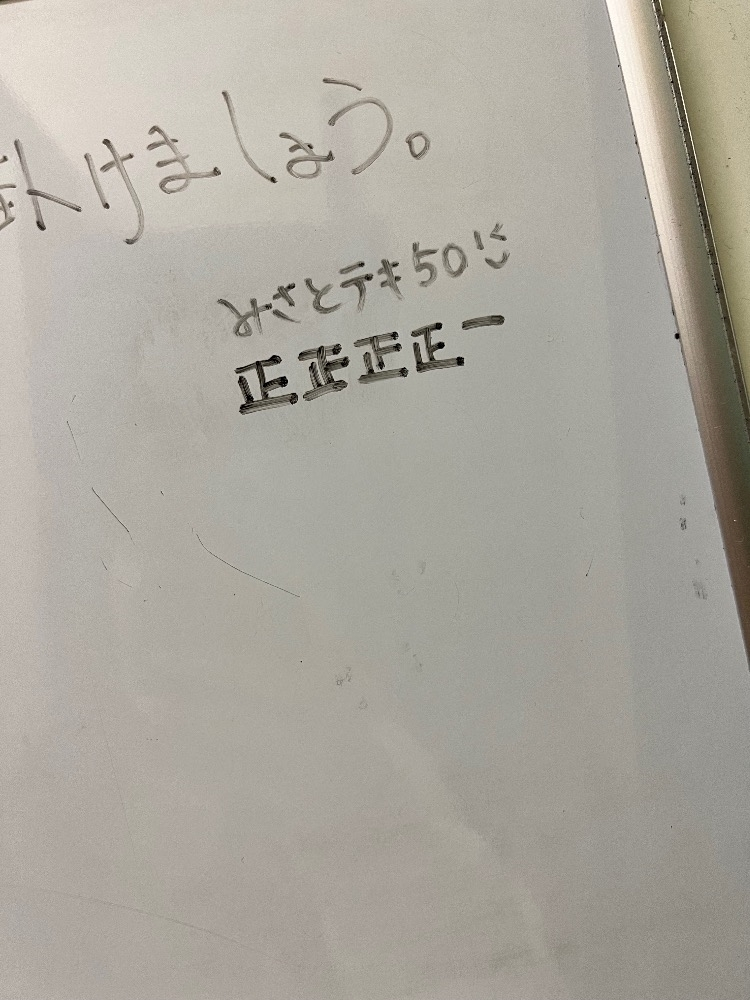 けましょう。
みさとテキ50
正正正正一